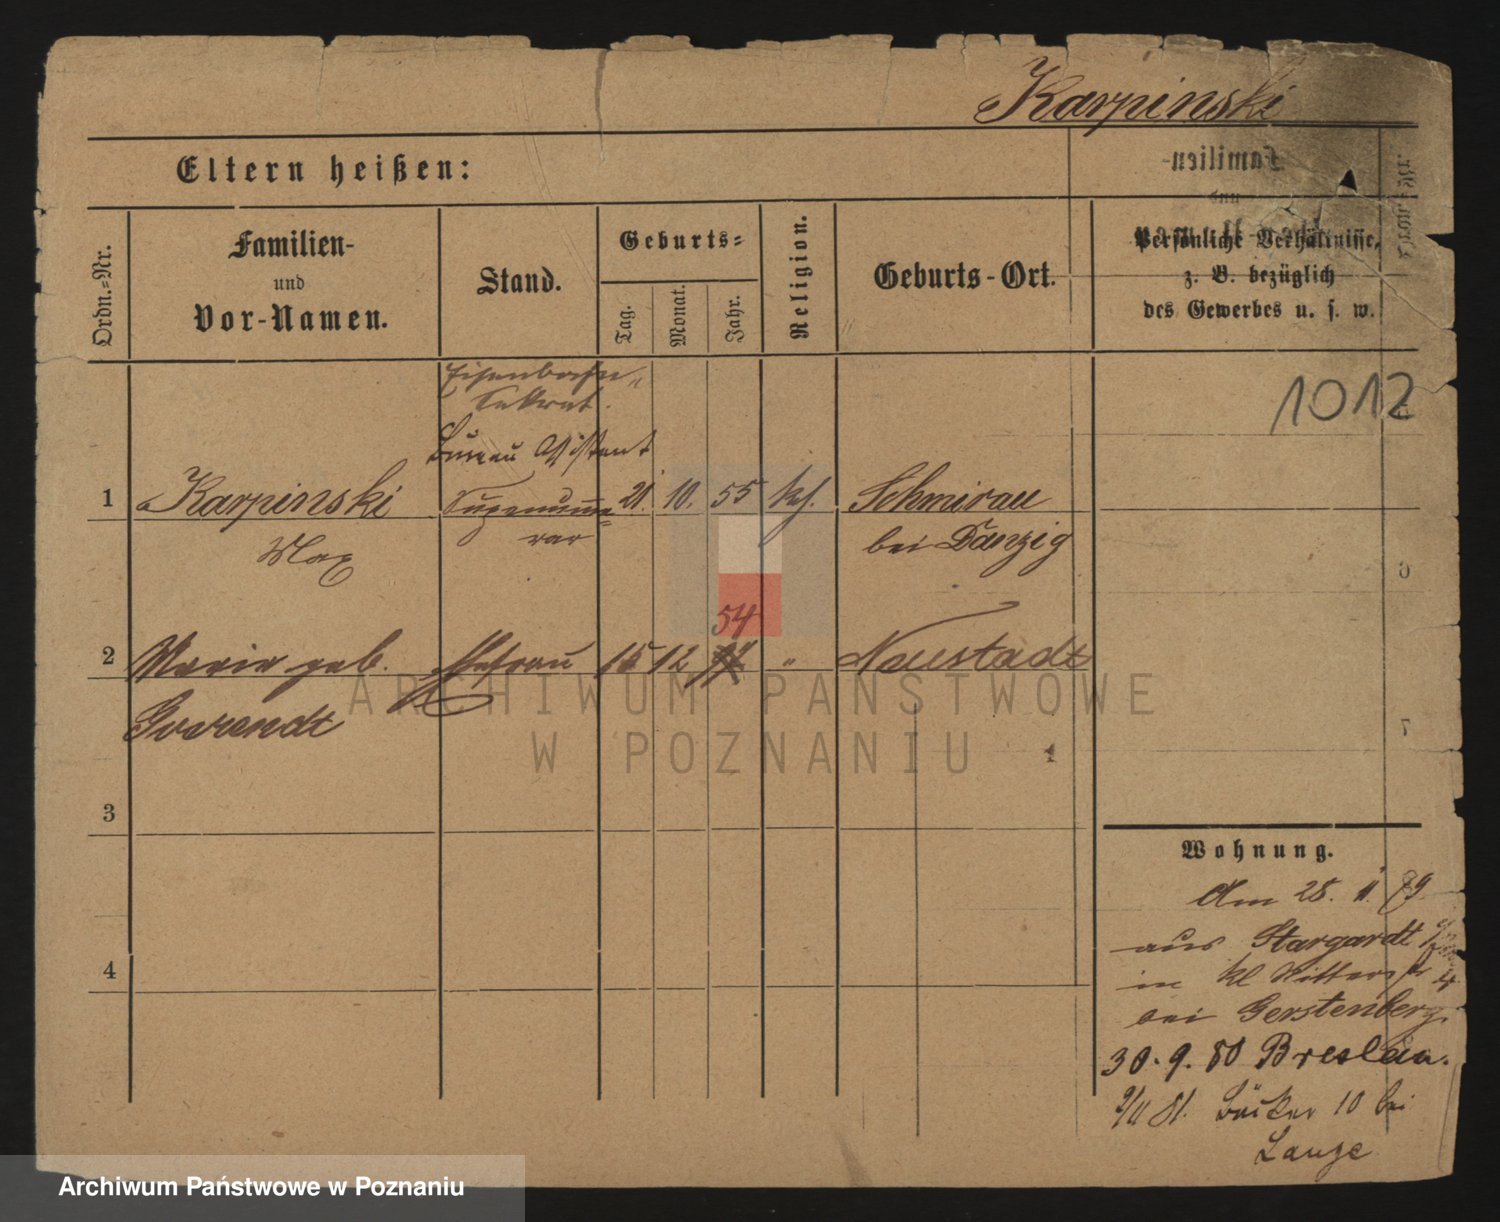 Karpinski
Eltern heißen:
Familien-
und
Ordn.-Nr.
Familien-
und
Vor-Namen.
Stand.
Geburts-
Tag.
Monat.
Jahr.
Religion.
Geburts-Ort.
Persönliche Verhältnisse,
z. B. bezüglich
des Gewerbes u. s. w.
1012
Eisenbahn-
Sekret.
Bureau Assistent
1 Karpinski Supernume- 21. 10. 55 kh. Schmirau
Max rar bei Danzig
54
2 Marie geb. Ehefrau 15 12 " Neustadt
ARCHIWUM PAŃSTWOWE
W POZNANIU
3
4
Wohnung.
Am 28. 11. 79
aus Stargardt
in kl Ritterstr 4
bei Gerstenberg.
30. 9. 80 Breslau.
2/11 81. Bäcker 10 bei
Lange
Archiwum Państwowe w Poznaniu